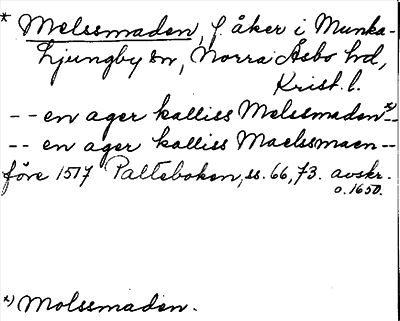 * Melssmaden, f åker i Munka-
Ljungby sn, Norra Åsbo hd,
Krist. l.
-- en ager kalliss Melssmaden x) --
-- en ager kalliss Maelssmaen --
före 1517 Palteboken, ss. 66, 73. avskr.
o. 1650.
x) Molssmaden.